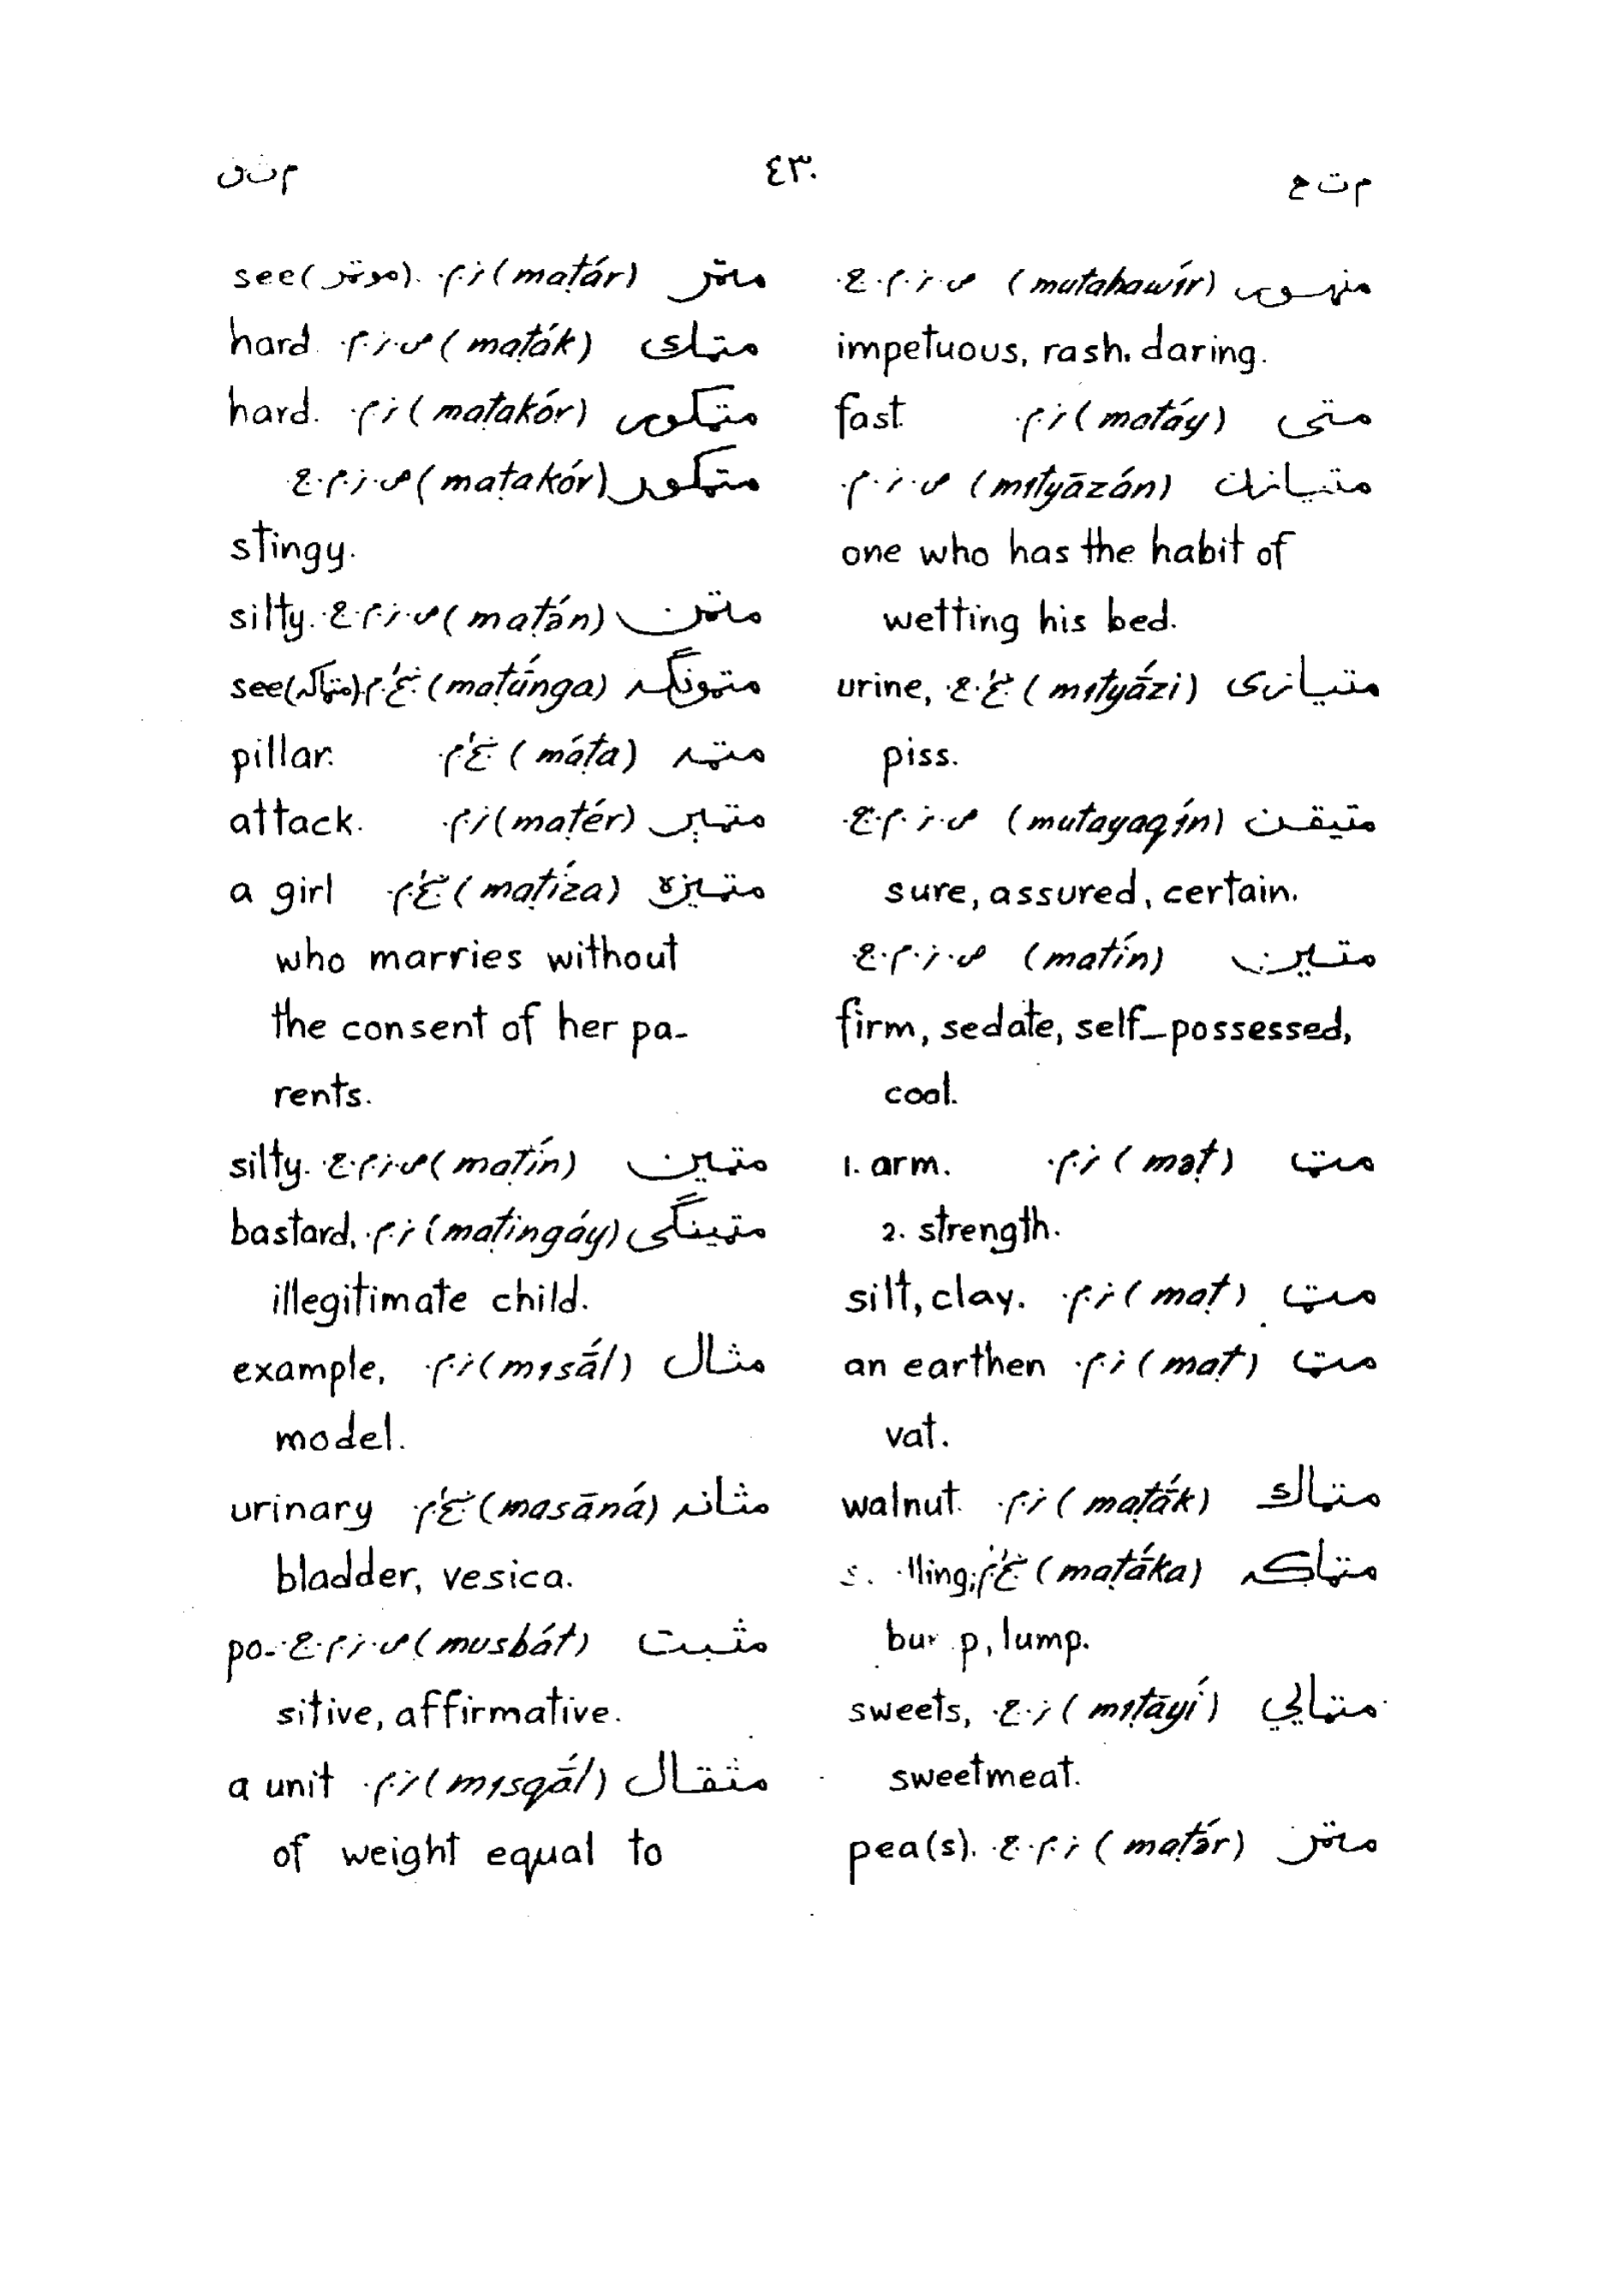 م ت ح
٤٣٠
م ث ق
متهور (mutahawír) ص.ز.م.ع.
impetuous, rash, daring.
متی (matáy) ز.م. fast.
متيازن (mɪtyāzán) ص.ز.م.
one who has the habit of
wetting his bed.
متيازی (mɪtyā́zi) غ.ع. urine,
piss.
متيقن (mutayaqín) ص.ز.م.ع.
sure, assured, certain.
متين (matín) ص.ز.م.ع.
firm, sedate, self-possessed,
coal.
مټ (məṭ) ز.م. 1. arm.
2. strength.
مټ (maṭ) ز.م. silt, clay.
مټ (maṭ) ز.م. an earthen
vat.
مټاك (maṭā́k) ز.م. walnut.
مټاكه (maṭā́ka) غ.م.
lump.
مټايي (mɪṭāyí) ز.ع. sweets,
sweetmeat.
مټر (maṭə́r) ز.م.ع. pea(s).
مټر (maṭár) ز.م. see (موټر).
مټك (maṭák) ص.ز.م. hard.
مټكور (maṭakór) ز.م. hard.
مټكور (maṭakór) ص.ز.م.ع.
stingy.
مټن (maṭə́n) ص.ز.م.ع. silty.
مټونګه (maṭúnga) غ.م. see (مټاكه).
مټه (máṭa) غ.م. pillar.
مټېر (maṭér) ز.م. attack.
مټيزه (maṭíza) غ.م. a girl
who marries without
the consent of her pa-
rents.
مټين (maṭín) ص.ز.م.ع. silty.
مټينګی (maṭingáy) ز.م. bastard,
illegitimate child.
مثال (mɪsā́l) ز.م. example,
model.
مثانه (masāná) غ.م. urinary
bladder, vesica.
مثبت (musbát) ص.ز.م.ع. po-
sitive, affirmative.
مثقال (mɪsqā́l) ز.م. a unit
of weight equal to